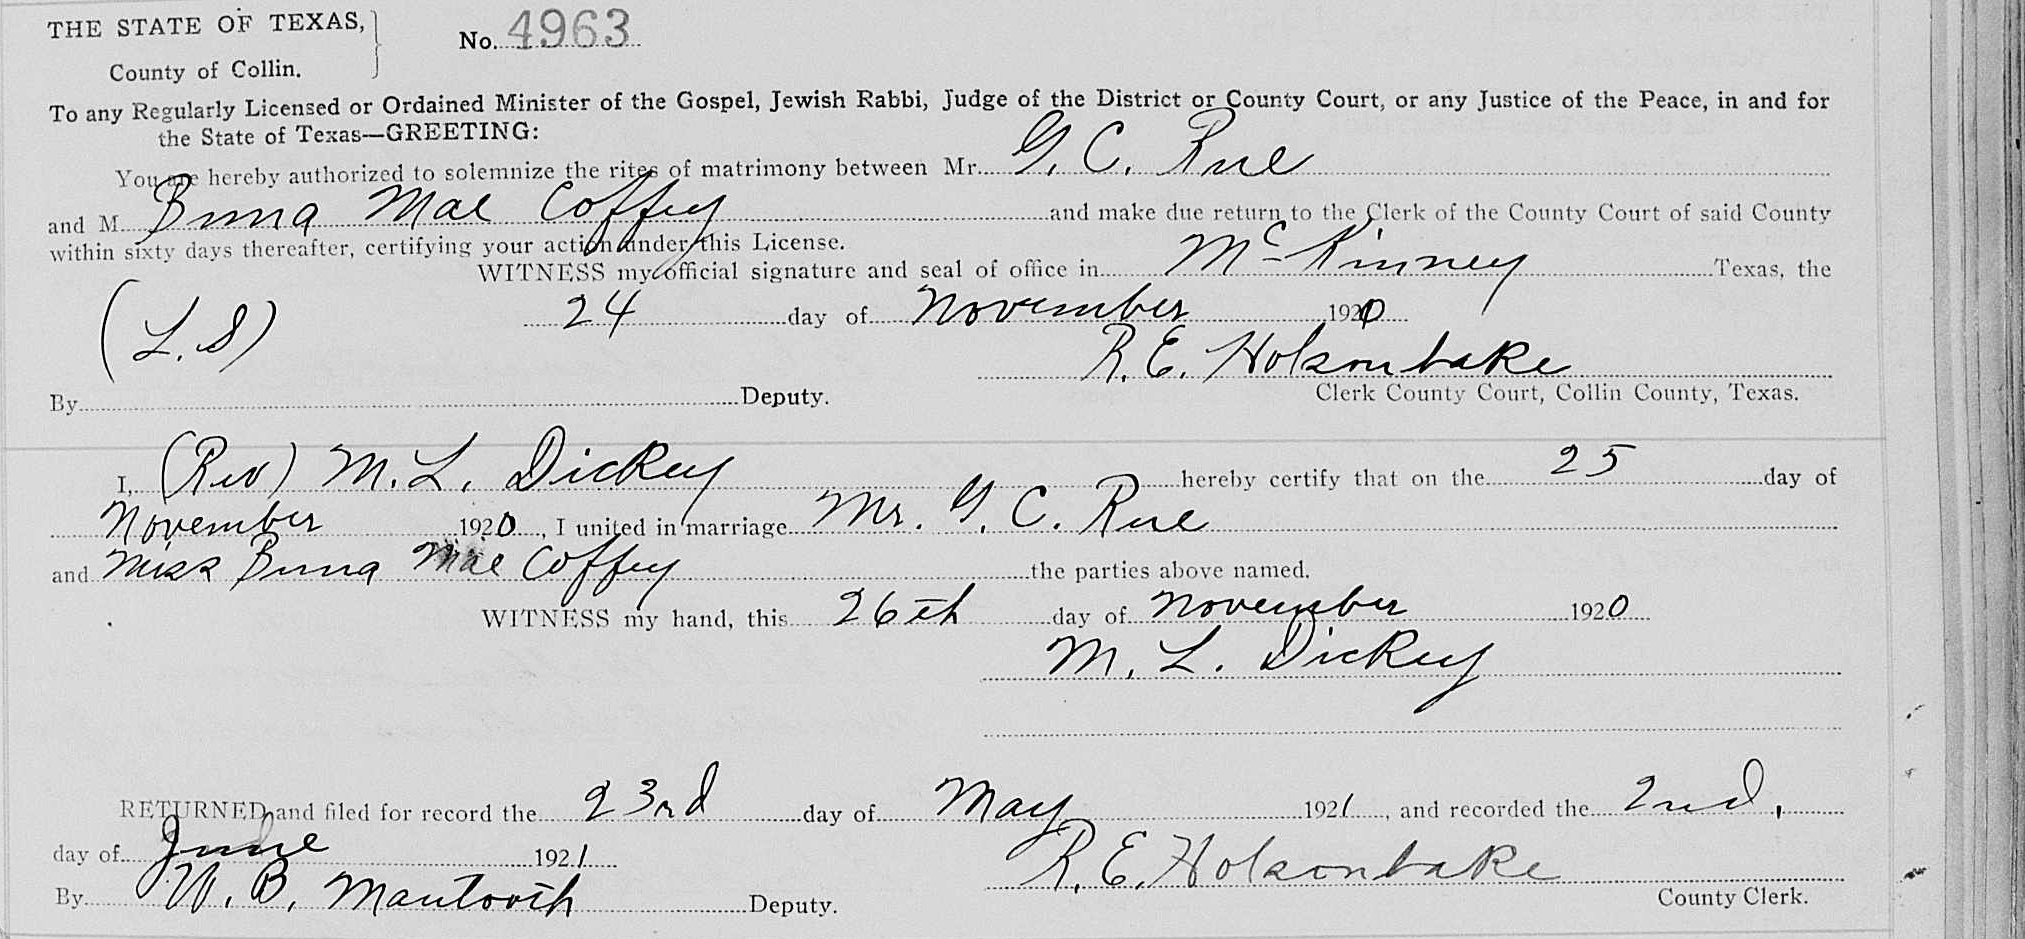 THE STATE OF TEXAS,
County of Collin.
No. 4963
To any Regularly Licensed or Ordained Minister of the Gospel, Jewish Rabbi, Judge of the District or County Court, or any Justice of the Peace, in and for
the State of Texas—GREETING:
You are hereby authorized to solemnize the rites of matrimony between Mr. G. C. Rue
and M Buna Mae Coffey and make due return to the Clerk of the County Court of said County
within sixty days thereafter, certifying your action under this License.
WITNESS my official signature and seal of office in McKinney Texas, the
(L.S) 24 day of November 1920
R. E. Holsonbake
By Deputy. Clerk County Court, Collin County, Texas.
I, (Rev) M. L. Dickey hereby certify that on the 25 day of
November 1920, I united in marriage Mr. G. C. Rue
and Miss Buna Mae Coffey the parties above named.
WITNESS my hand, this 26th day of November 1920
M. L. Dickey
RETURNED and filed for record the 23rd day of May 1921, and recorded the 2nd,
day of June 1921
R. E. Holsonbake
By W. B. Mantooth Deputy. County Clerk.